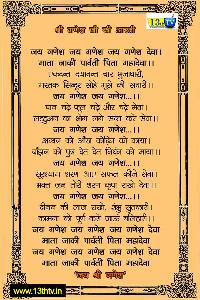 13th tv
श्री गणेश जी की आरती
जय गणेश जय गणेश जय गणेश देवा।
माता जाकी पार्वती पिता महादेवा।।
एकदन्त दयावन्त चार भुजाधारी,
मस्तक सिन्दूर सोहे मूसे की सवारी।।
जय गणेश जय गणेश...।।
पान चढ़े फूल चढ़े और चढ़े मेवा।
लड्डुअन का भोग लगे सन्त करे सेवा।।
जय गणेश जय गणेश...।।
अन्धन को आँख कोढ़िन को काया।
बाँझन को पुत्र देत निर्धन को माया।।
जय गणेश जय गणेश...।।
सूरश्याम शरण आए सफल कीजे सेवा।
जय गणेश जय गणेश...।।
दीनन की लाज राखो, शम्भु
कामना को पूर्ण करो
जय गणेश जय गणेश जय गणेश देवा
माता जाकी पार्वती पिता महादेवा
जय गणेश जय गणेश जय गणेश देवा
माता जाकी पार्वती पिता महादेवा
"जय श्री गणेश"
www.13thtv.in